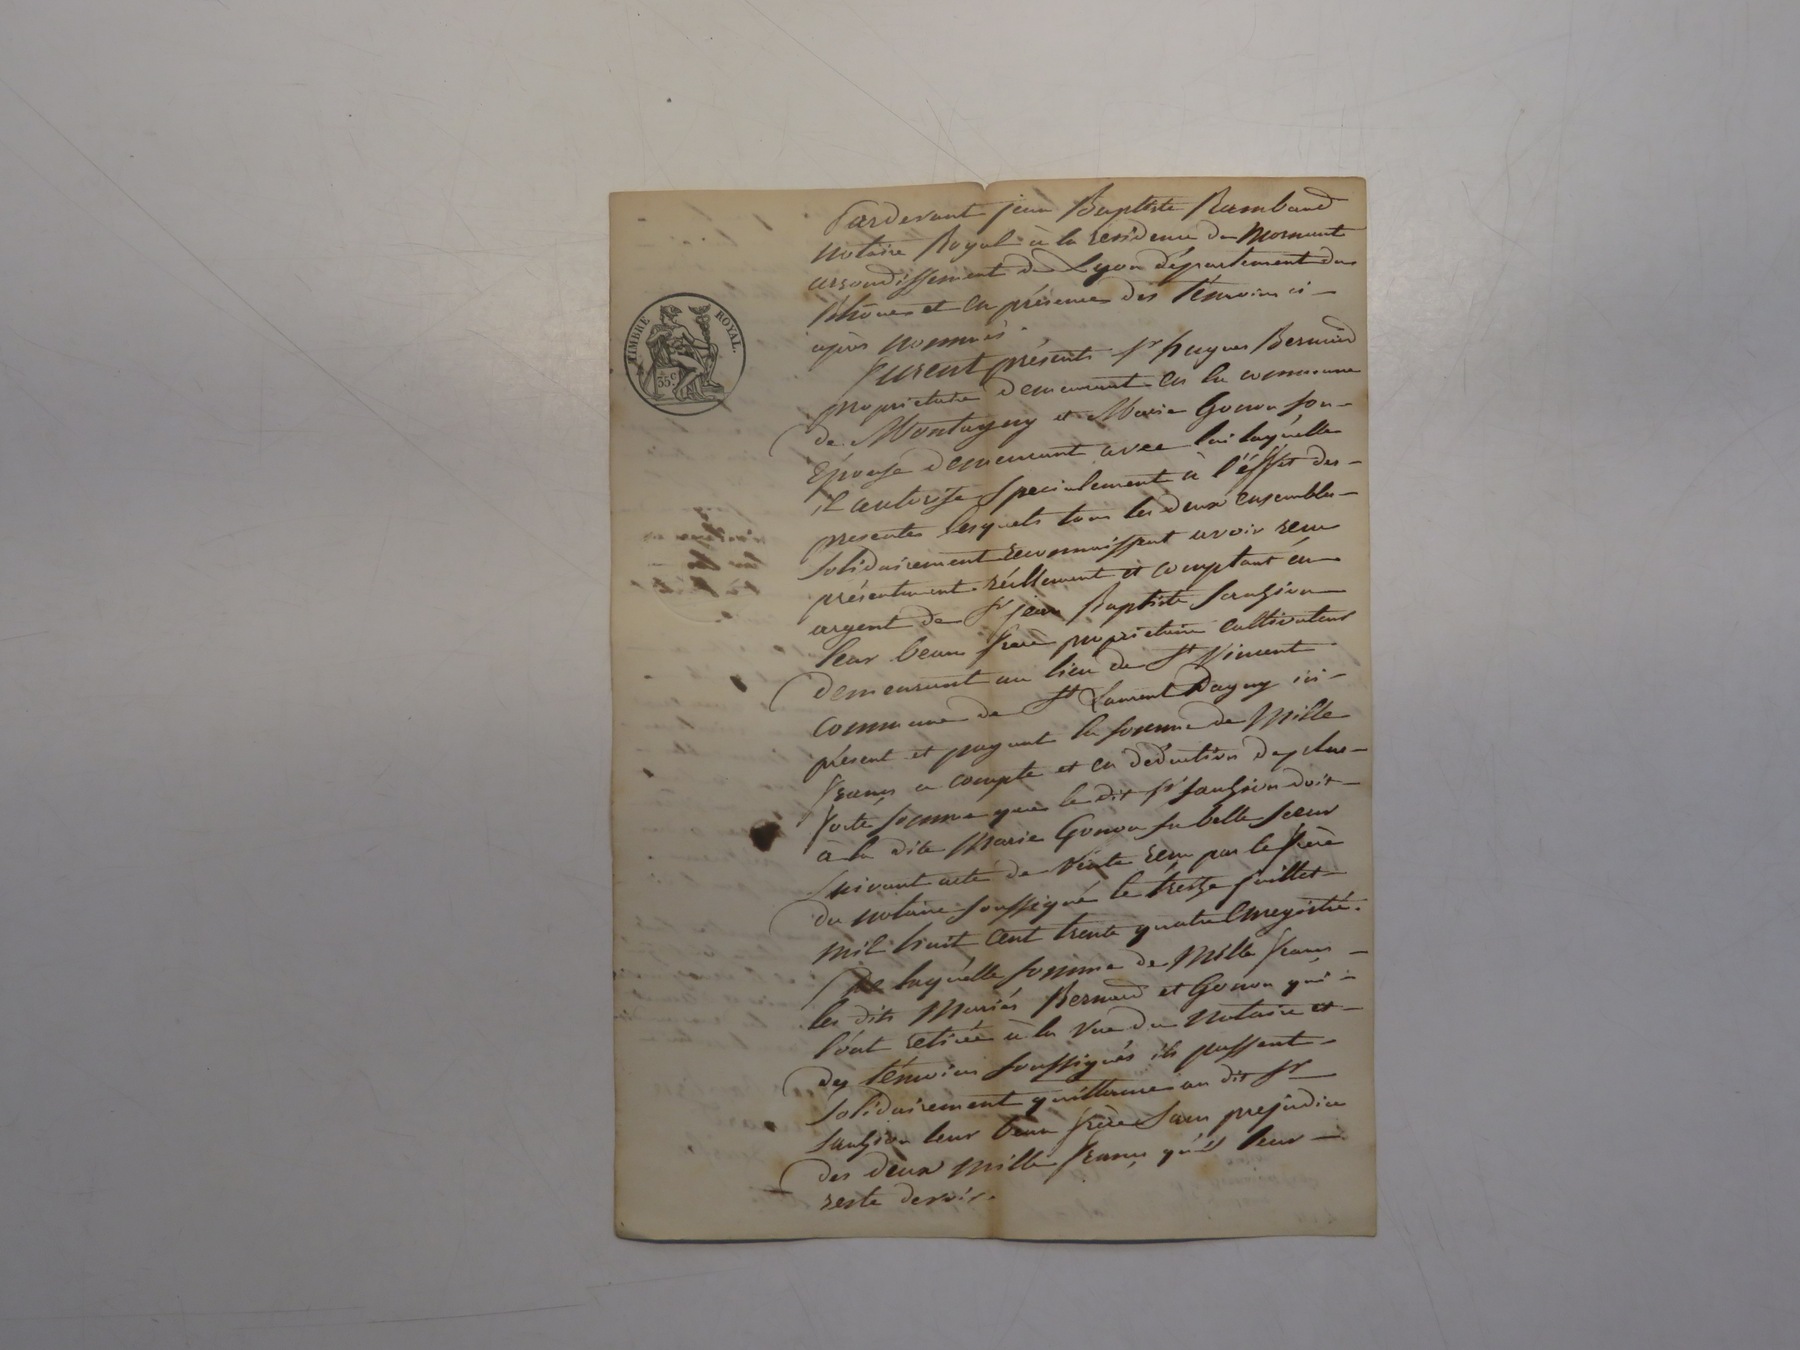 TIMBRE ROYAL.
35 c
Pardevant jean Baptiste Rambaud
notaire Royal à la residence de Mornant
arrondissement de Lyon département du
Rhône et en présence des témoins ci-
après nommés
Furent présents Sr hugues Bernard
propriétaire demeurant en la commune
de Montagny et Marie Gonon son-
épouse demeurant avec lui laquelle
il autorise specialement à l'éffet des-
presentes lesquels tous les deux ensembles-
solidairement reconnaissent avoir recu
présentement réellement et comptant en
argent de Sr jean Baptiste
leur beau frère propriétaire cultivateur
demeurant au lieu de St Vincent
commune de St Laurent Dagny ici-
présent et payant la somme de Mille
francs a compte et en déduction de plus-
forte somme que le dit Sr doit-
à la dite Marie Gonon sa belle soeur
suivant acte de Vente recu par le frère
du notaire soussigné le treize juillet-
mil huit cent trente quatre Enregistré.
De laquelle somme de Mille francs-
les dits Mariés Bernard et Gonon qui-
l'ont retirée à la Vue du Notaire et-
des témoins soussignés ils passent-
solidairement quittance au dit Sr
leur beau frère Sans prejudice
des deux Mille francs qu'il leur-
reste devoir.